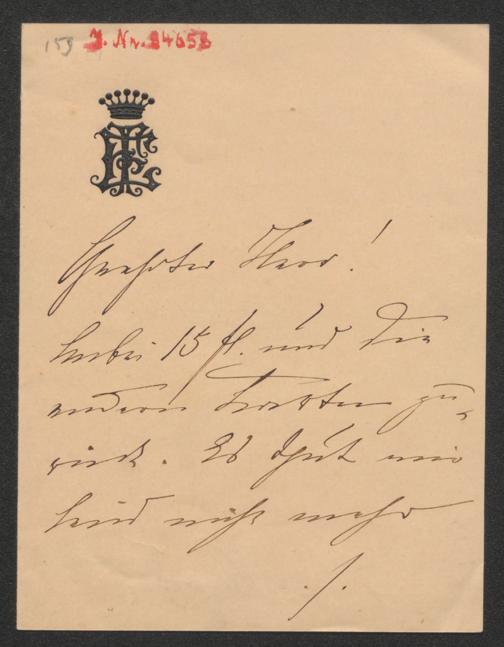 159 J. Nr. 84653
EF
Geehrter Herr!
Anbei 15 fl. und die
andern Karten zu-
rück. Es thut mir
leid nicht mehr
./.